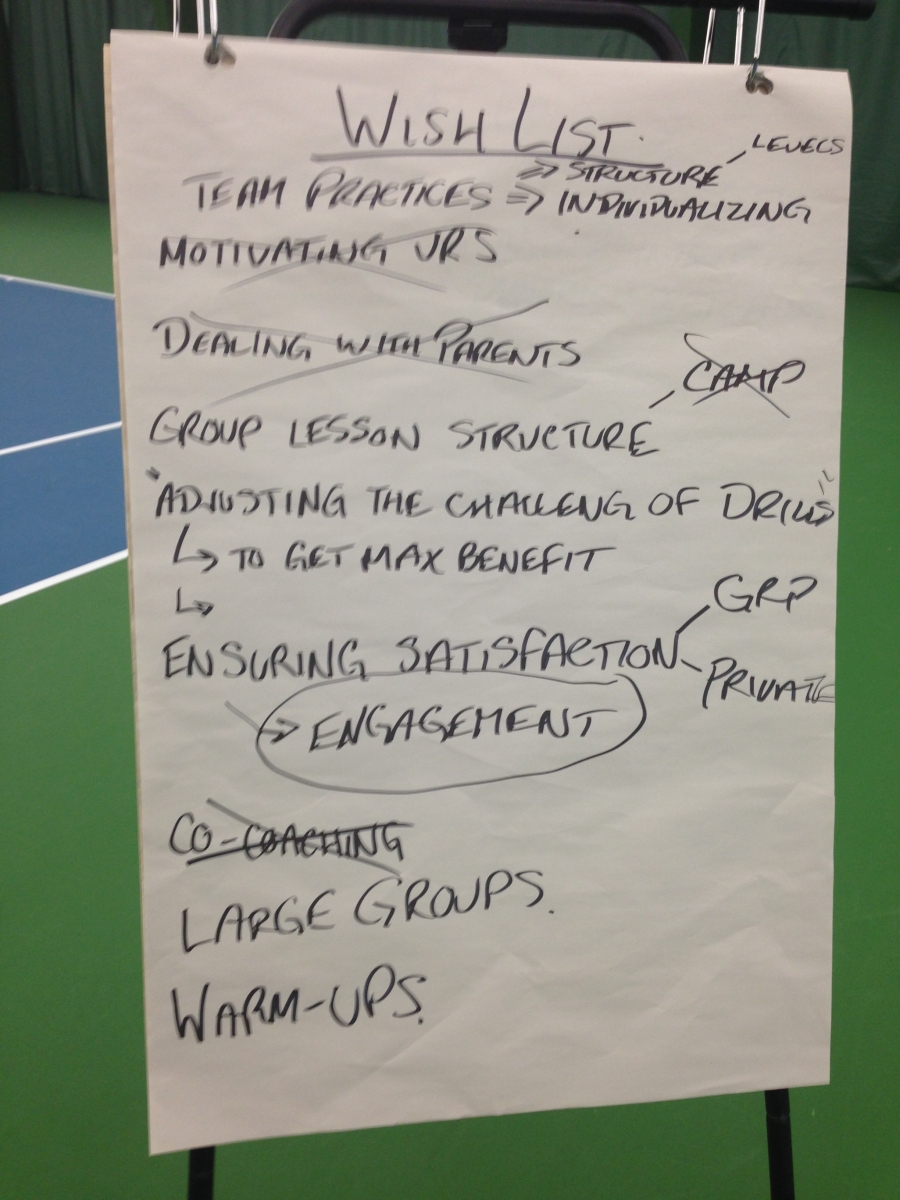 WISH LIST.
LEVELS
⇒ STRUCTURE
TEAM PRACTICES ⇒ INDIVIDUALIZING
MOTIVATING JRS
DEALING WITH PARENTS
CAMP
GROUP LESSON STRUCTURE
"ADJUSTING THE CHALLENG OF DRILLS"
↳ TO GET MAX BENEFIT
↳
GRP
ENSURING SATISFACTION
PRIVATE
⇒ ENGAGEMENT
CO-COACHING
LARGE GROUPS.
WARM-UPS.